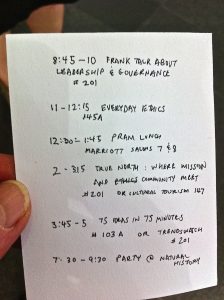 8:45-10 FRANK TALK ABOUT
LEADERSHIP & GOVERNANCE
# 201
11-12:15 EVERYDAY ETHICS
145A
12:00-1:45 PRAM LUNCH
MARRIOTT SALONS 7 & 8
2-315 TRUE NORTH: WHERE MISSION
AND ETHICS COMMUNITY MEET
#201 OR CULTURAL TOURISM 147
3:45-5 75 IDEAS IN 75 MINUTES
# 103A OR TRENDSWATCH
#201
7:30-9:30 PARTY @ NATURAL
HISTORY